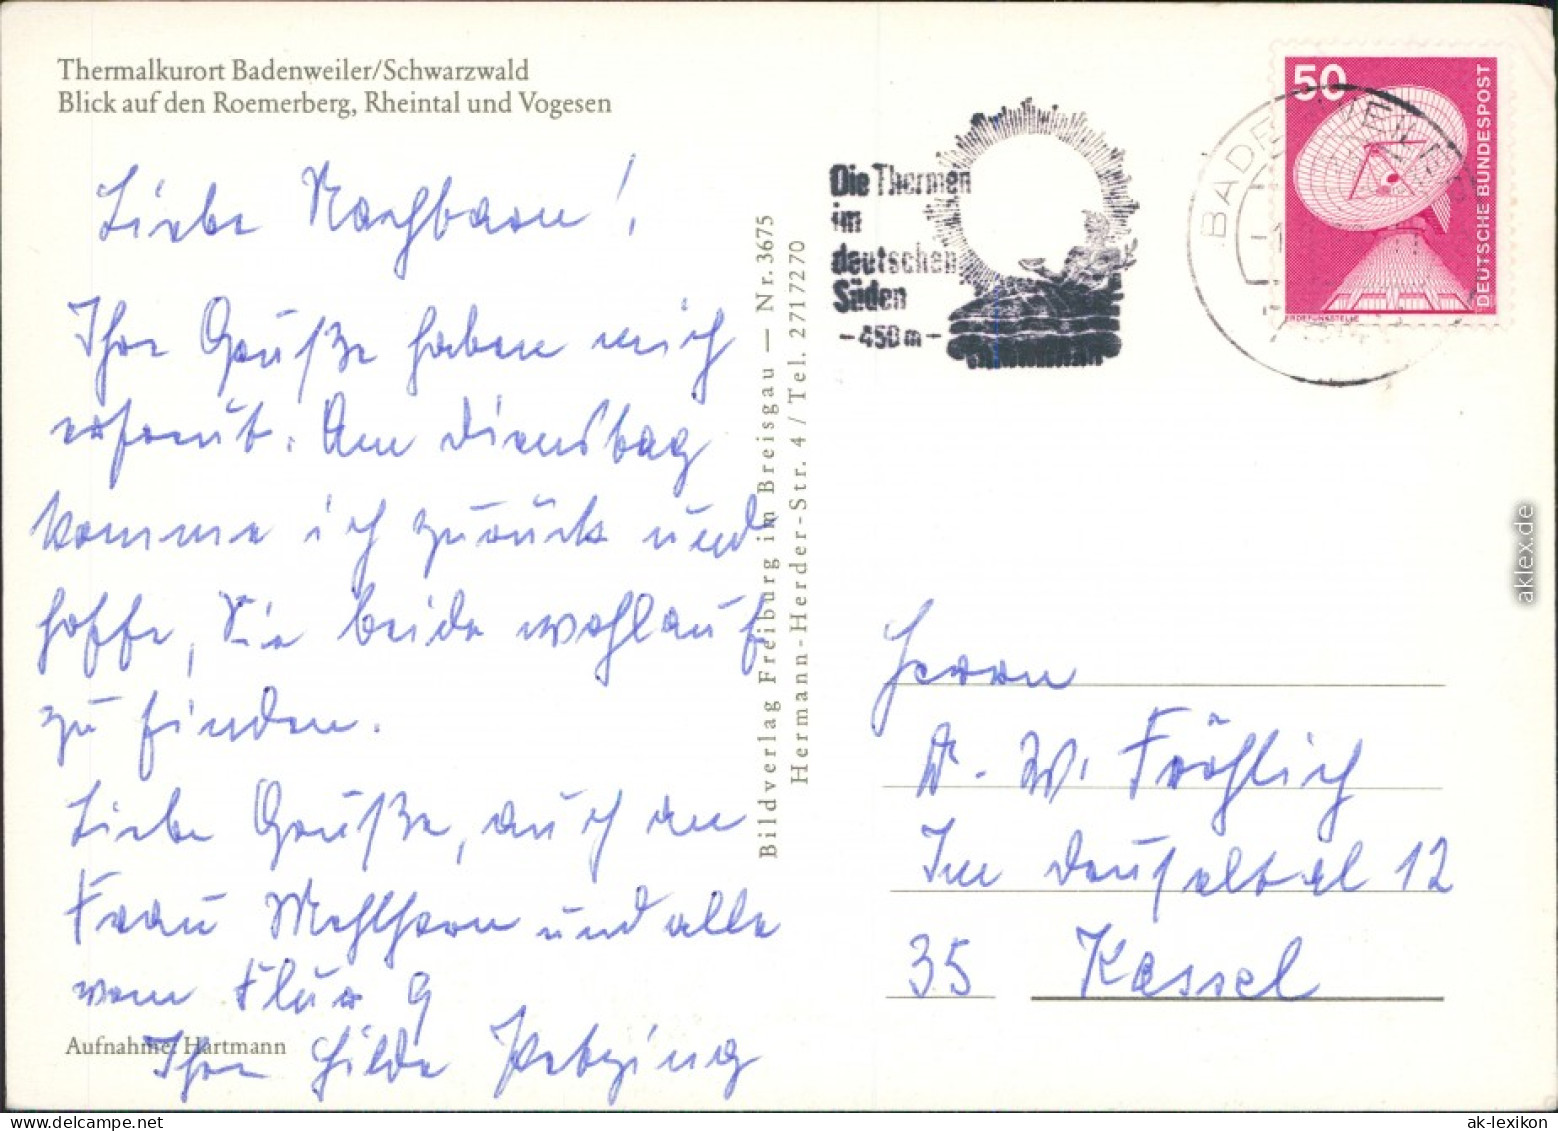 Thermalkurort Badenweiler/Schwarzwald
Blick auf den Roemerberg, Rheintal und Vogesen
Liebe Nachbarn!
Ihre Grüße haben mich
erfreut. Am Dienstag
komme ich zurück und
hoffe, Sie beide wohlauf
zu finden.
Liebe Grüße, auch an
Frau Mehlhorn und alle
vom Flur 9
Ihre Hilde
Aufnahme: Hartmann
Bildverlag Freiburg im Breisgau — Nr. 3675
Hermann-Herder-Str. 4 / Tel. 2717270
Die Thermen
im
deutschen
Süden
- 450 m -
BADENWEILER
50
DEUTSCHE BUNDESPOST
ERDEFUNKSTELLE
Herrn
Dr. W. Fröhlich
Im Druseltal 12
35 Kassel
aklex.de
ak-lexikon